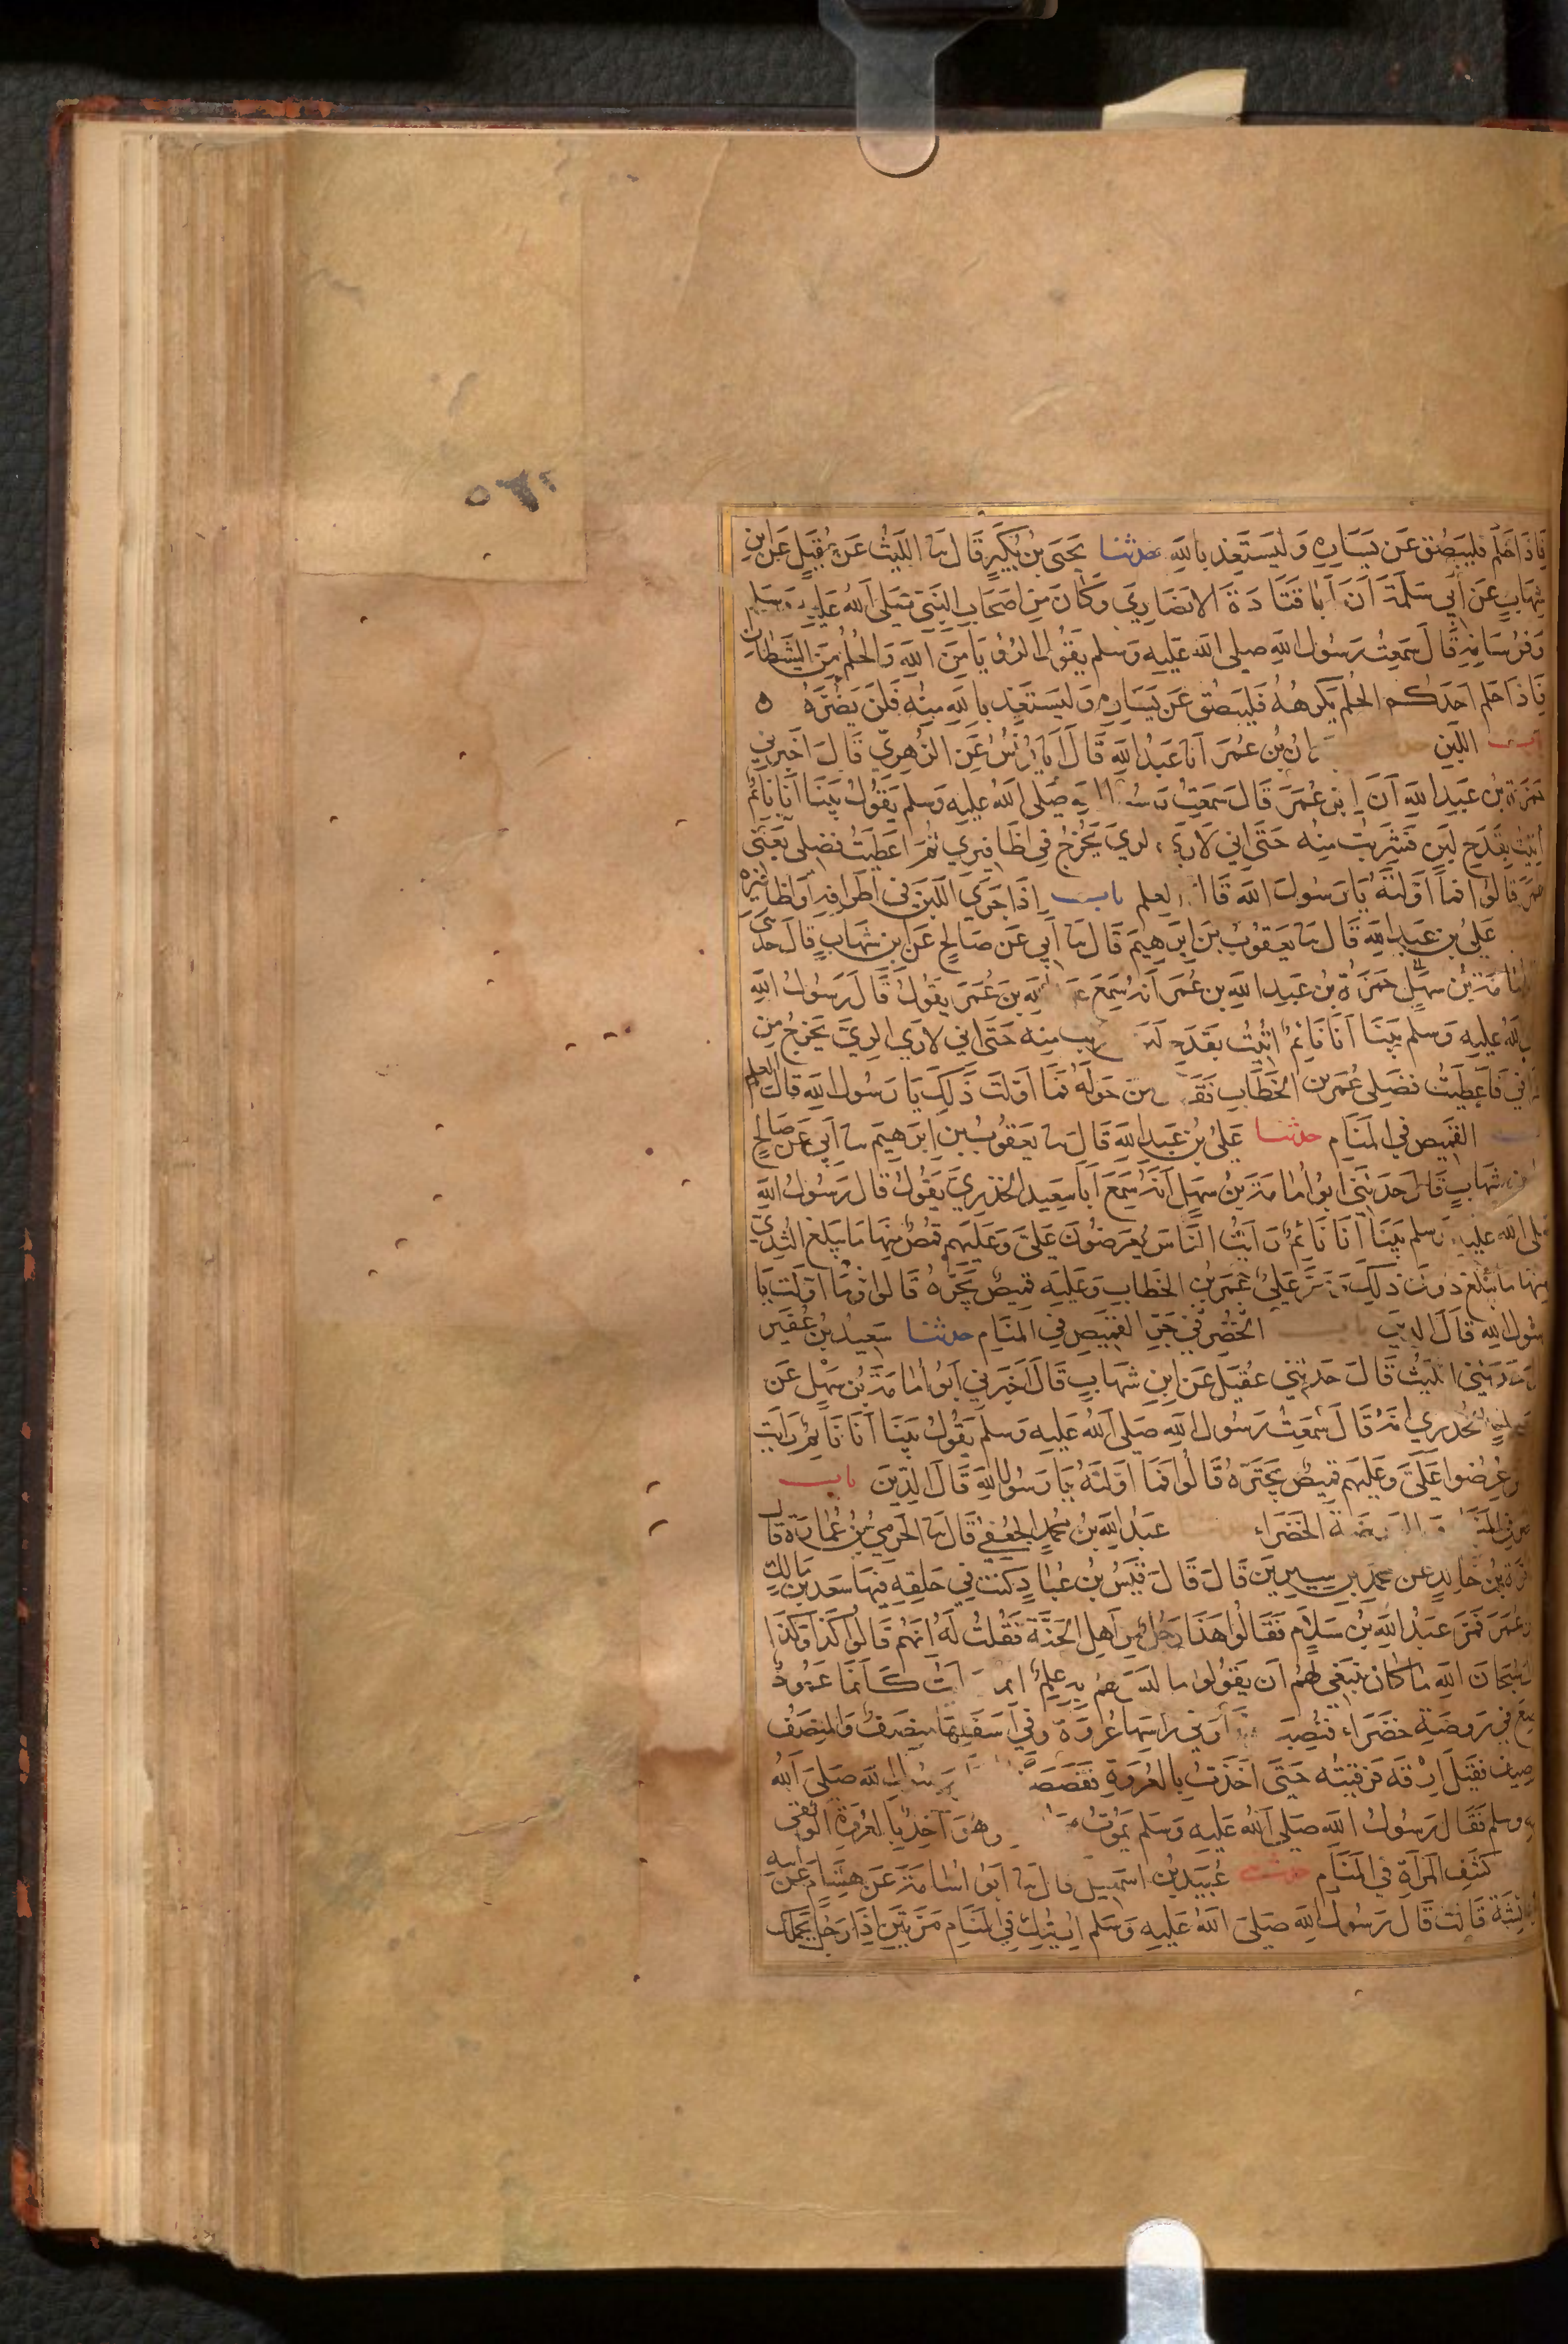 ٥٦٤
فَاذَا حَلَمَ فَليَبصُق عَن يَسَارِهِ وَليَستَعِذ بِاللهِ حدثنا يَحيَى بنُ بُكَيرٍ قَالَ نا اللَيثُ عَن عُقَيلٍ عَن ابنِ
شِهَابٍ عَن اَبِي سَلَمَةَ اَنَّ اَبَا قَتَادَةَ الانصَارِيَ وَكَانَ مِن اَصحَابِ النَّبِيِّ صَلى اَللهُ عَلَيهِ وَسَلم
وَفُرسَانِهِ قَالَ سَمِعتُ رَسُولَ اللهِ صلى الله عَلَيهِ وَسَلم يَقُولُ الرُؤيَا مِنَ اللهِ وَالحُلُمُ مِنَ الشَيطَانِ
فَاِذَا حَلَمَ احَدُكُم الحُلمَ يَكرَهُهُ فَليَبصُق عَن يَسَارِهِ وَليَستَعِذ بِاللهِ مِنهُ فَلَن يَضُرَّهُ ه
باب اللبن ان بن عُمَرَ اَنا عَبدُ اللهِ قَالَ اَنا يُونُسُ عَن الزُهرِيّ قَالَ اَخبَرَنِي
حَمزَة بن عَبدِ اللهِ اَنَّ ابنَ عُمَرَ قَالَ سَمِعتُ رَسُو الله صَلى اللهُ عليه وَسلم يَقُولُ بَينَا اَنَا نَائِم
اُتِيتُ بِقَدَحِ لَبَنٍ فَشَرِبتُ مِنه حَتّى اِنِي لَارَى الرِيَ يَخرُجُ فِي اَظَافِيرِي ثُمَّ اعطَيتُ فَضلِي يَعنِي
عمَرَ قَالُوا فَمَا اَوَّلتَهُ يَا رَسُولَ الله قَالَ العِلم باب اِذَا جَرَى اللَبَنُ فِي اَطرَافِهِ اَو اَظَافِيرِه
عَلِيُ بن عَبدِ اللهِ قَالَ نا يَعقُوبُ بنُ اِبرَهِيمَ قَالَ نا اَبِي عَن صَالِحٍ عَن ابنِ شِهَابٍ قَالَ حَدثَنِي
حَمزَةُ بنُ عَبدِ اللهِ بن عُمَر اَنَهُ سَمِعَ عَبد اللهِ بنَ عُمَرَ يَقُولُ قَالَ رَسُولُ اللهِ
اللهُ عليه وَسلم بَينَا اَنَا نَائِمٌ اُتِيتُ بِقَدَحِ مِنه حَتَى اِنِي لَارَى الرِيَّ يَخرُجُ مِن
فَاَعطَيتُ فَضلِي عُمَرَ بن الخَطَّابِ فَقَ مَن حَولَهُ فَمَا اَوَّلتَ ذَلِكَ يَا رَسُولَ اللهِ قَالَ العِلم
القَمِيصِ فِي المَنَامِ حدثنا عَلِيُ بنُ عَبدِ اللهِ قَالَ نا يَعقُوبُ بنُ اِبرَهِيمَ نا اَبِي عَن صَالِحٍ
عن ابن شِهَابٍ قَالَ حَدَثَنِي ابُو اُمَامَةَ بنُ سَهلٍ اَنَّهُ سَمِعَ اَبَا سَعِيدٍ الخُدرِيَّ يَقُولُ قَالَ رَسُولُ اللهِ
صلى الله عليه وَسلم بَينَا اَنَا نَائِمٌ رَاَيتُ النَّاسَ يُعرَضُونَ عَلَيَّ وَعَلَيهِم قُمُصٌ مِنهَا مَا يَبلُغُ الثُدِيَّ
مِنهَا مَا يَبلُغُ دُونَ ذَلِكَ وَمَرَّ عَلَيَّ عُمَرُ بنُ الخَطابِ وَعَلَيهِ قَمِيصٌ يَجُرُّهُ قَالُوا فَمَا اَوَّلتَ يَا
رَسُولَ اللهِ قَالَ الدِّينَ باب جَرِّ القَمِيصِ فِي المَنَامِ حدثنا سَعِيدُ بنُ عُفَيرٍ
حَدَثَنِي اللَيثُ قَالَ حَدَثَنِي عُقَيلٌ عَن ابنِ شِهَابٍ قَالَ اَخبَرَنِي اَبُو اُمَامَةَ بنُ سَهلٍ عَن
الخُدرِي اَنَهُ قَالَ سَمِعتُ رَسُولَ اللهِ صَلى اللهُ عَلَيهِ وَسلم يَقُولُ بَينَا اَنَا نَائِمٌ رَاَيتُ
عُرِضُوا عَلَيَّ وَعَلَيهِم قَمِيصٌ يَجتَرُّهُ قَالُوا فَمَا اَوَّلتَهُ يَا رَسُولَ اللهِ قَالَ الدِّينَ باب
الخَضرَاء عَبدُ اللهِ بنُ مُحَمدٍ الجُعفِيُ قَالَ نا الحَرَمِيُ بنُ عُمَارَةَ قَالَ
قُرَةُ بنُ خَالِدٍ عَن مُحمدِ بن سِيرِينَ قَالَ قَالَ قَيسُ بنُ عُبَادٍ كُنتُ فِي حَلقَةٍ فِيهَا سَعدُ بنُ مَالِكٍ
عُمَرَ فَمَرَّ عَبدُ اللهِ بنُ سَلَامٍ فَقَالُوا هَذَا رَجُلٌ مِن اَهلِ الجَنَّةِ فَقُلتُ لَهُ اِنَهُم قَالُوا كَذَا وَكَذَا
سُبحَانَ اللهِ مَا كَانَ يَنبَغِي لَهُم اَن يَقُولُوا مَا لَيسَ لَهُم بِهِ عِلمٌ كَاَنَّمَا عَمُودٌ
فِي رَوضَةٍ خَضرَاءَ فَنُصِبَ وَفِي رَاسِهَا عُروَةٌ وَفِي اَسفَلِهَا مِنصَفٌ وَالمِنصَفُ
الوَصِيفُ فَقِيلَ اِرقَه فَرَقِيتُه حَتَّى اَخَذتُ بِالعُروَةِ فَقَصَصتُ رَسُولِ اللهِ صَلَى اَللهُ
عليه وسلم فَقَالَ رَسُولُ اللهِ صَلى اللهُ عَلَيهِ وَسَلم يَمُوتُ وَهُوَ آخِذٌ بِالعُروَةِ الوُثقَى
كَشفِ المَراَةِ فِي المَنَامِ حدثنا عُبَيدُ بنُ اسمَعِيل قَالَ نا اَبُو اُسَامَةَ عَن هِشَام عَن اَبِيهِ
عَائِشَةَ قَالَت قَالَ رَسُولُ اللهِ صَلى اللهُ عَلَيهِ وَسَلم اُرِيتُكِ فِي المَنَامِ مَرَّتَينِ اِذَا رَجُلٌ يَحمِلُكِ